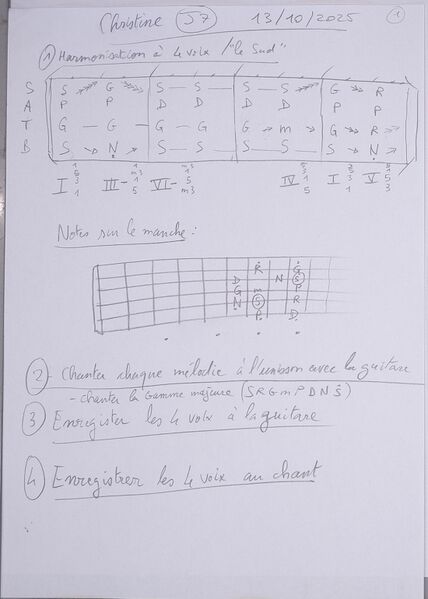 Christine S7 13/10/2025 1
1 Harmonisation à 4 voix / "le Sud"
S S G S — S S — S G R
A P P D D D D P P
T G — G G — G G m G R
B S N S — S S — S S N
I III- VI- IV I V
1 5 3 1
1 m3 1 5
m3 1 5 m3
Notes sur le manche :
R G
D N S
G m P
N S R
P D
2 - Chanter chaque mélodie à l'unisson avec la guitare
- chanter la Gamme majeure (S R G m P D N Ṡ)
3 Enregister les 4 voix à la guitare
4 Enregistrer les 4 voix au chant